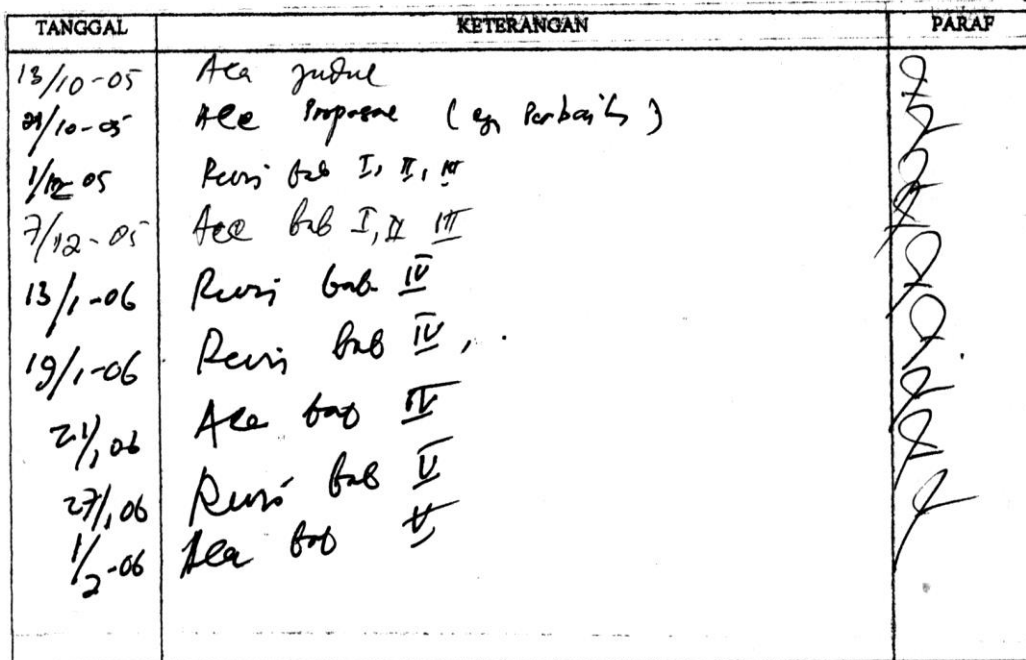 TANGGAL KETERANGAN PARAF
13/10-05 Acc judul
21/10-05 Acc Proposal ( Perbaik )
1/12 05 Revisi bab I, II, III
7/12-05 Acc bab I, II III
13/1-06 Revisi bab IV
19/1-06 Revisi bab IV,
21/1 06 Acc bab IV
27/1 06 Revisi bab V
1/2-06 Acc bab V